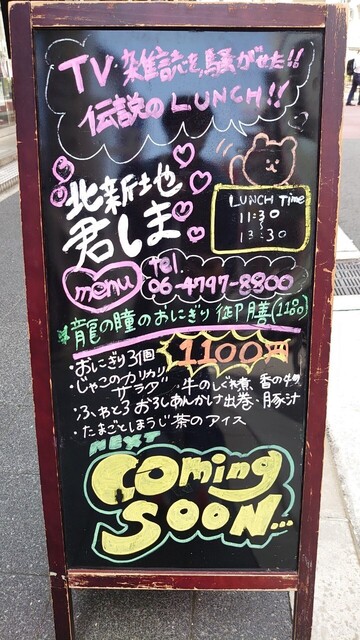 TV・雑誌を騒がせた!!
伝説のLUNCH!!
北新地
君しま
LUNCH Time
11:30
〜
13:30
menu
tel.
06-4797-8800
龍の瞳のおにぎり御膳(11品)
・おにぎり3個
1100円
・じゃこのカリカリサラダ・牛のしぐれ煮、香の物
・ふわとろおろしあんかけ出巻・豚汁
・たまごとほうじ茶のアイス
NEXT
Coming
SOON...